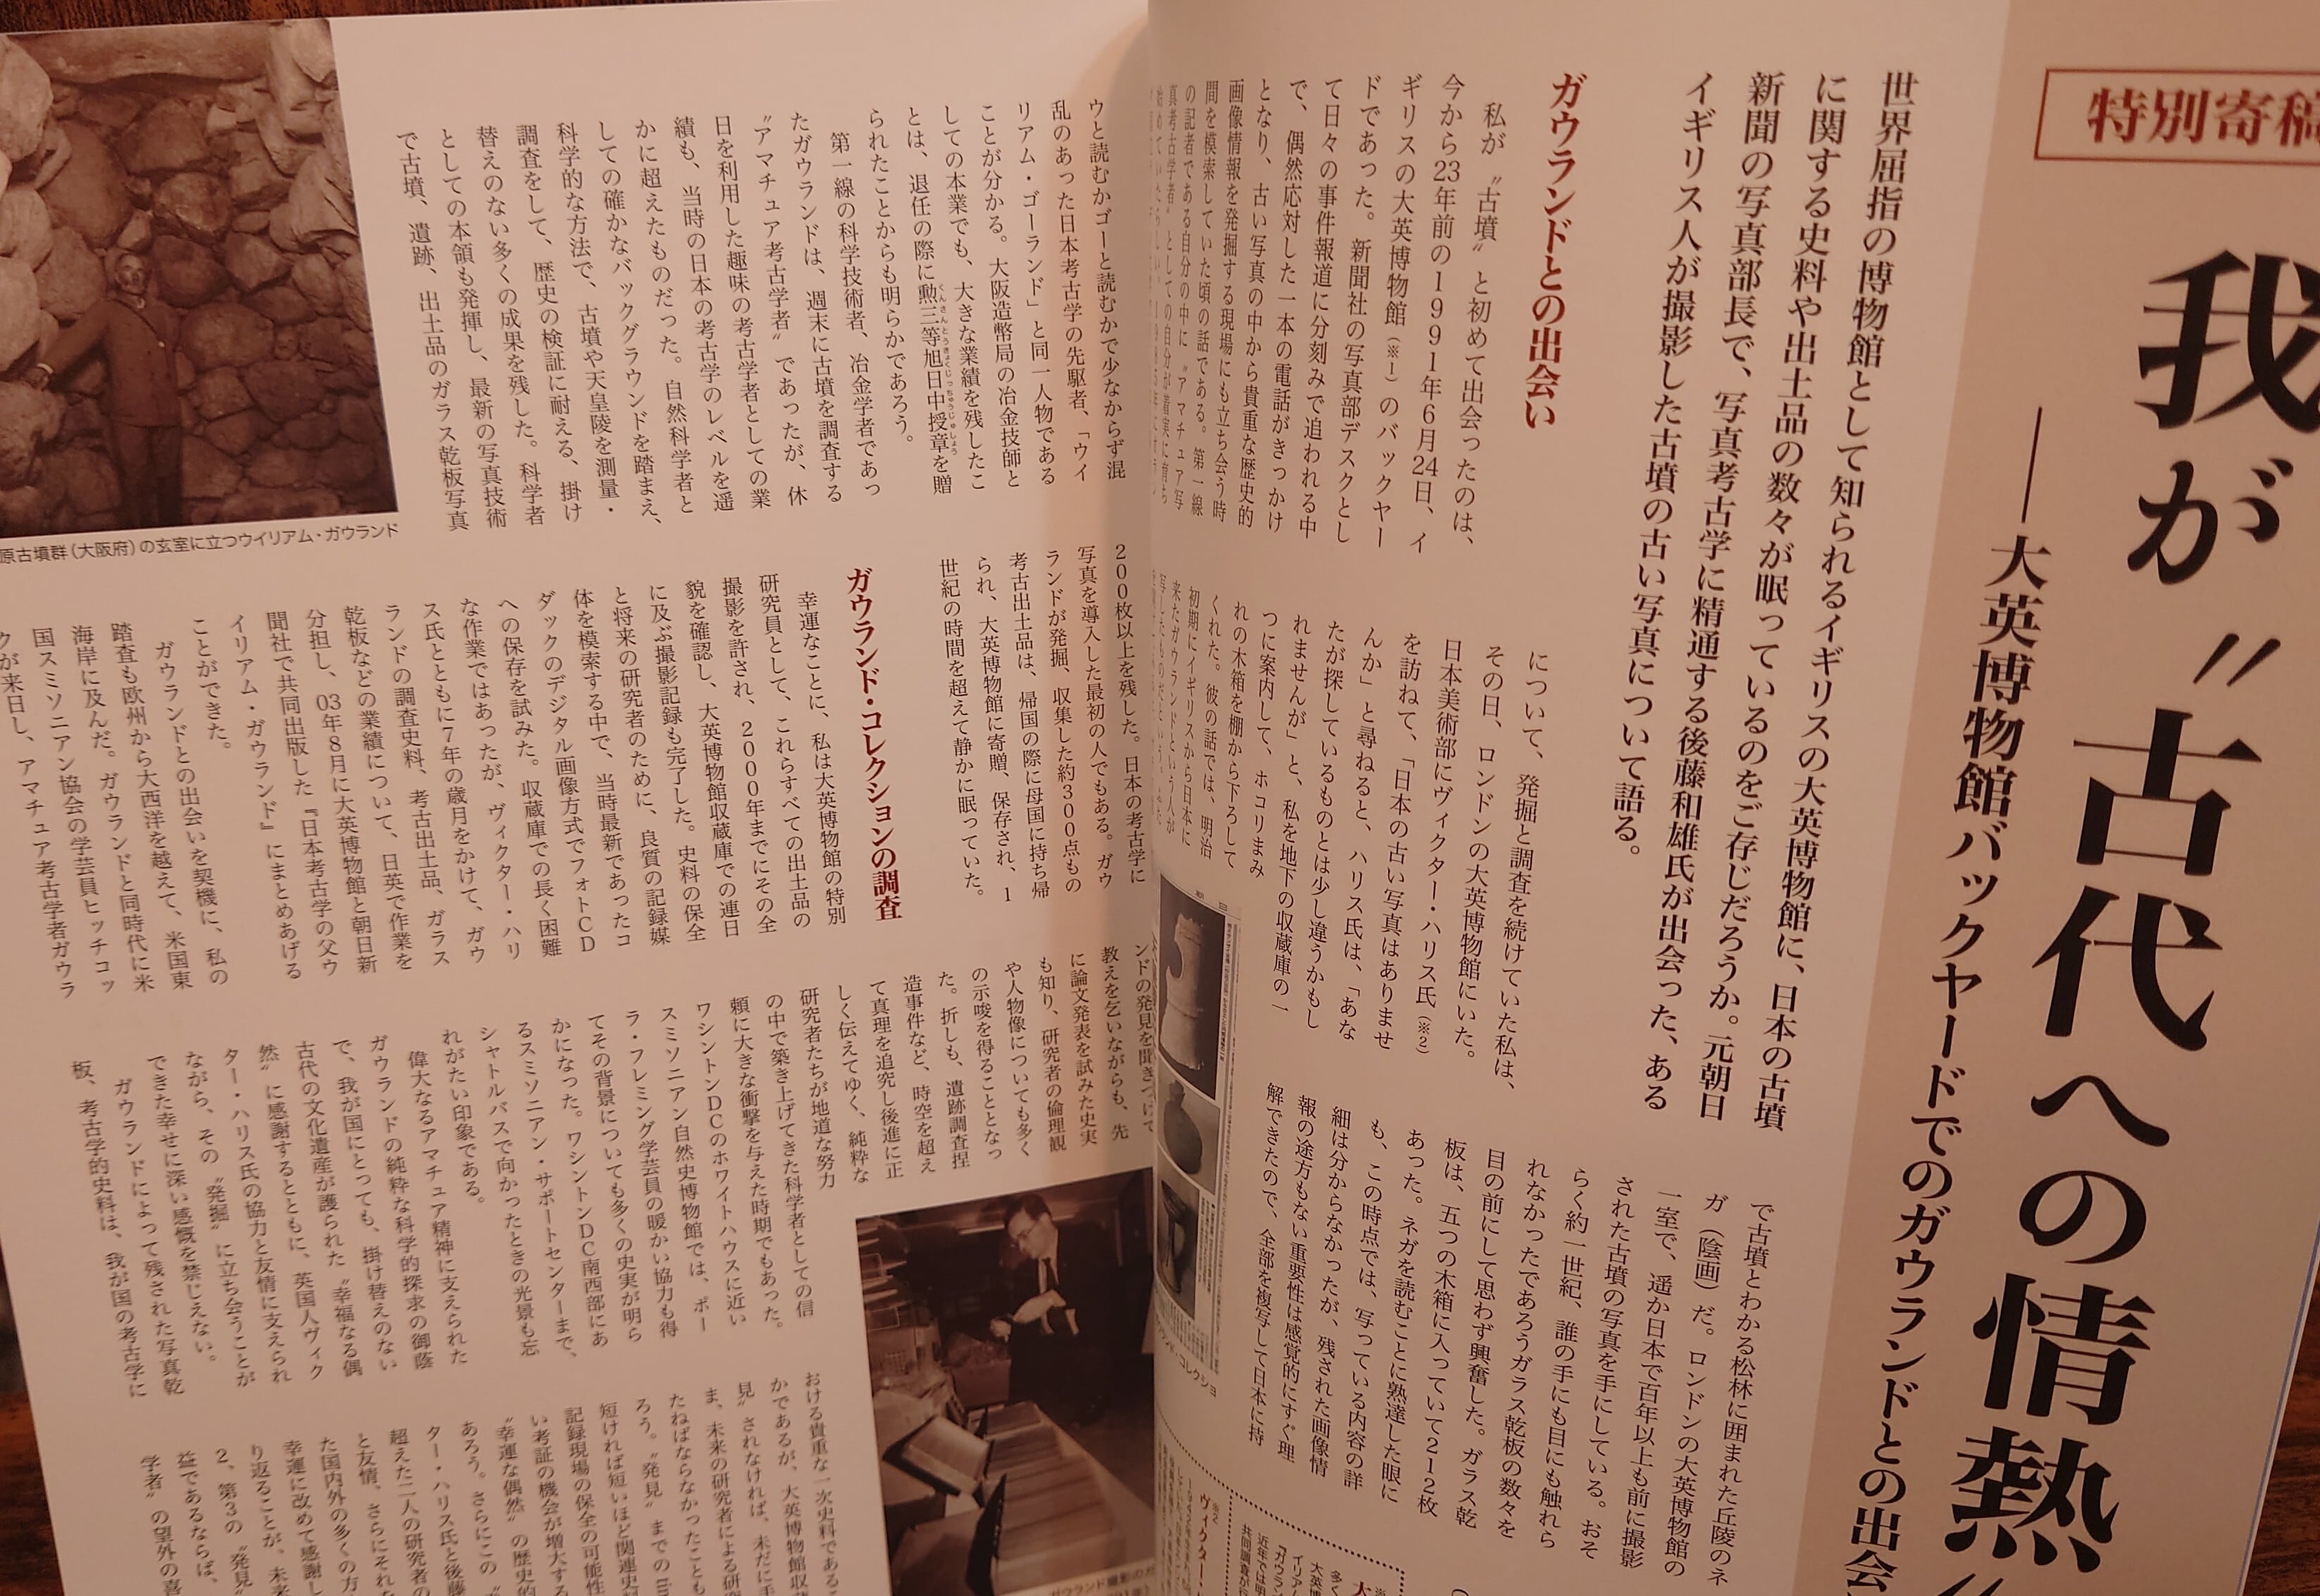 特別寄稿
我が〝古代への情熱〟
――大英博物館バックヤードでのガウランドとの出会
世界屈指の博物館として知られるイギリスの大英博物館に、日本の古墳
に関する史料や出土品の数々が眠っているのをご存じだろうか。元朝日
新聞の写真部長で、写真考古学に精通する後藤和雄氏が出会った、ある
イギリス人が撮影した古墳の古い写真について語る。
ガウランドとの出会い
私が〝古墳〟と初めて出会ったのは、
今から23年前の1991年6月24日、イ
ギリスの大英博物館(※1)のバックヤー
ドであった。新聞社の写真部デスクとし
て日々の事件報道に分刻みで追われる中
で、偶然応対した一本の電話がきっかけ
となり、古い写真の中から貴重な歴史的
画像情報を発掘する現場にも立ち会う時
間を模索していた頃の話である。第一線
の記者である自分の中に〝アマチュア写
真考古学者〟としての自分が着実に育ち
について、発掘と調査を続けていた私は、
その日、ロンドンの大英博物館にいた。
日本美術部にヴィクター・ハリス氏(※2)
を訪ねて、「日本の古い写真はありませ
んか」と尋ねると、ハリス氏は、「あな
たが探しているものとは少し違うかもし
れませんが」と、私を地下の収蔵庫の一
つに案内して、ホコリまみ
れの木箱を棚から下ろして
くれた。彼の話では、明治
初期にイギリスから日本に
来たガウランドという人が
で古墳とわかる松林に囲まれた丘陵のネ
ガ(陰画)だ。ロンドンの大英博物館の
一室で、遥か日本で百年以上も前に撮影
された古墳の写真を手にしている。おそ
らく約一世紀、誰の手にも目にも触れら
れなかったであろうガラス乾板の数々を
目の前にして思わず興奮した。ガラス乾
板は、五つの木箱に入っていて212枚
あった。ネガを読むことに熟達した眼に
も、この時点では、写っている内容の詳
細は分からなかったが、残された画像情
報の途方もない重要性は感覚的にすぐ理
解できたので、全部を複写して日本に持
ウと読むかゴーと読むかで少なからず混
乱のあった日本考古学の先駆者、「ウイ
リアム・ゴーランド」と同一人物である
ことが分かる。大阪造幣局の冶金技師と
しての本業でも、大きな業績を残したこ
とは、退任の際に勲三等旭日中授章を贈
られたことからも明らかであろう。
第一線の科学技術者、冶金学者であっ
たガウランドは、週末に古墳を調査する
〝アマチュア考古学者〟であったが、休
日を利用した趣味の考古学者としての業
績も、当時の日本の考古学のレベルを遥
かに超えたものだった。自然科学者と
しての確かなバックグラウンドを踏まえ、
科学的な方法で、古墳や天皇陵を測量・
調査をして、歴史の検証に耐える、掛け
替えのない多くの成果を残した。科学者
としての本領も発揮し、最新の写真技術
で古墳、遺跡、出土品のガラス乾板写真
原古墳群(大阪府)の玄室に立つウイリアム・ガウランド
200枚以上を残した。日本の考古学に
写真を導入した最初の人でもある。ガウ
ランドが発掘、収集した約300点もの
考古出土品は、帰国の際に母国に持ち帰
られ、大英博物館に寄贈、保存され、1
世紀の時間を超えて静かに眠っていた。
ガウランド・コレクションの調査
幸運なことに、私は大英博物館の特別
研究員として、これらすべての出土品の
撮影を許され、2000年までにその全
貌を確認し、大英博物館収蔵庫での連日
に及ぶ撮影記録も完了した。史料の保全
と将来の研究者のために、良質の記録媒
体を模索する中で、当時最新であったコ
ダックのデジタル画像方式でフォトCD
への保存を試みた。収蔵庫での長く困難
な作業ではあったが、ヴィクター・ハリ
ス氏とともに7年の歳月をかけて、ガウ
ランドの調査史料、考古出土品、ガラス
乾板などの業績について、日英で作業を
分担し、03年8月に大英博物館と朝日新
聞社で共同出版した『日本考古学の父ウ
イリアム・ガウランド』にまとめあげる
ことができた。
ガウランドとの出会いを契機に、私の
踏査も欧州から大西洋を越えて、米国東
海岸に及んだ。ガウランドと同時代に米
国スミソニアン協会の学芸員ヒッチコッ
クが来日し、アマチュア考古学者ガウラ
ンドの発見を聞きつけて
教えを乞いながらも、先
に論文発表を試みた史実
も知り、研究者の倫理観
や人物像についても多く
の示唆を得ることとなっ
た。折しも、遺跡調査捏
造事件など、時空を超え
て真理を追究し後進に正
しく伝えてゆく、純粋な
研究者たちが地道な努力
の中で築き上げてきた科学者としての信
頼に大きな衝撃を与えた時期でもあった。
ワシントンDCのホワイトハウスに近い
スミソニアン自然史博物館では、ポー
ラ・フレミング学芸員の暖かい協力も得
てその背景についても多くの史実が明ら
かになった。ワシントンDC南西部にあ
るスミソニアン・サポートセンターまで、
シャトルバスで向かったときの光景も忘
れがたい印象である。
偉大なるアマチュア精神に支えられた
ガウランドの純粋な科学的探求の御蔭
で、我が国にとっても、掛け替えのない
古代の文化遺産が護られた〝幸福なる偶
然〟に感謝するとともに、英国人ヴィク
ター・ハリス氏の協力と友情に支えられ
ながら、その〝発掘〟に立ち会うことが
できた幸せに深い感慨を禁じえない。
ガウランドによって残された写真乾
板、考古学的史料は、我が国の考古学に
おける貴重な一次史料であるこ
かであるが、大英博物館収蔵
見〟されなければ、未だに手
ま、未来の研究者による研究
たねばならなかったことも
ろう。〝発見〟までの
短ければ短いほど関連史
記録現場の保全の可能性
い考証の機会が増大する
〝幸運な偶然〟の歴史的
あろう。さらにこの
ター・ハリス氏と後藤
超えた二人の研究者の
と友情、さらにそれ
た国内外の多くの方
幸運に改めて感謝し
り返ることが、未来
2、第3の〝発見〟
益であるならば、
学者〟の望外の喜